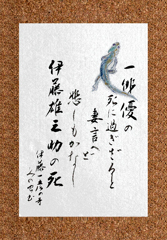 一俳優の
死に過ぎざると
妻言へど
悲しもかなし
伊藤雄之助の死